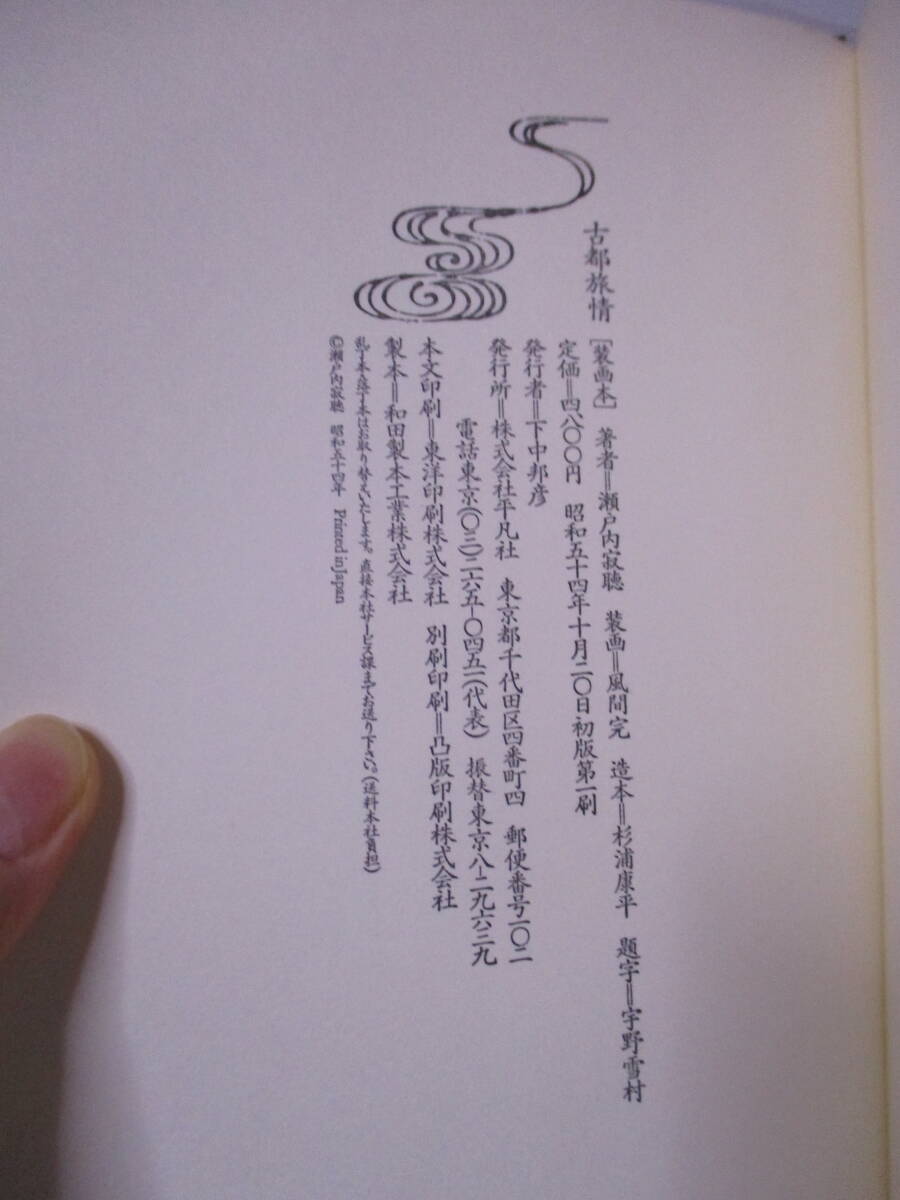 古都旅情
[装画本] 著者=瀬戸内寂聴 装画=風間完 造本=杉浦康平 題字=宇野雪村
定価=四八〇〇円 昭和五十四年十月二〇日初版第一刷
発行者=下中邦彦
発行所=株式会社平凡社 東京都千代田区四番町四 郵便番号一〇二
電話東京(〇三)二六五-〇四五一(代表) 振替東京八-二九六三九
本文印刷=東洋印刷株式会社 別刷印刷=凸版印刷株式会社
製本=和田製本工業株式会社
乱丁本・落丁本はお取り替えいたします。直接本社サービス課までお送り下さい。(送料本社負担)
©瀬戸内寂聴 昭和五十四年 Printed in Japan